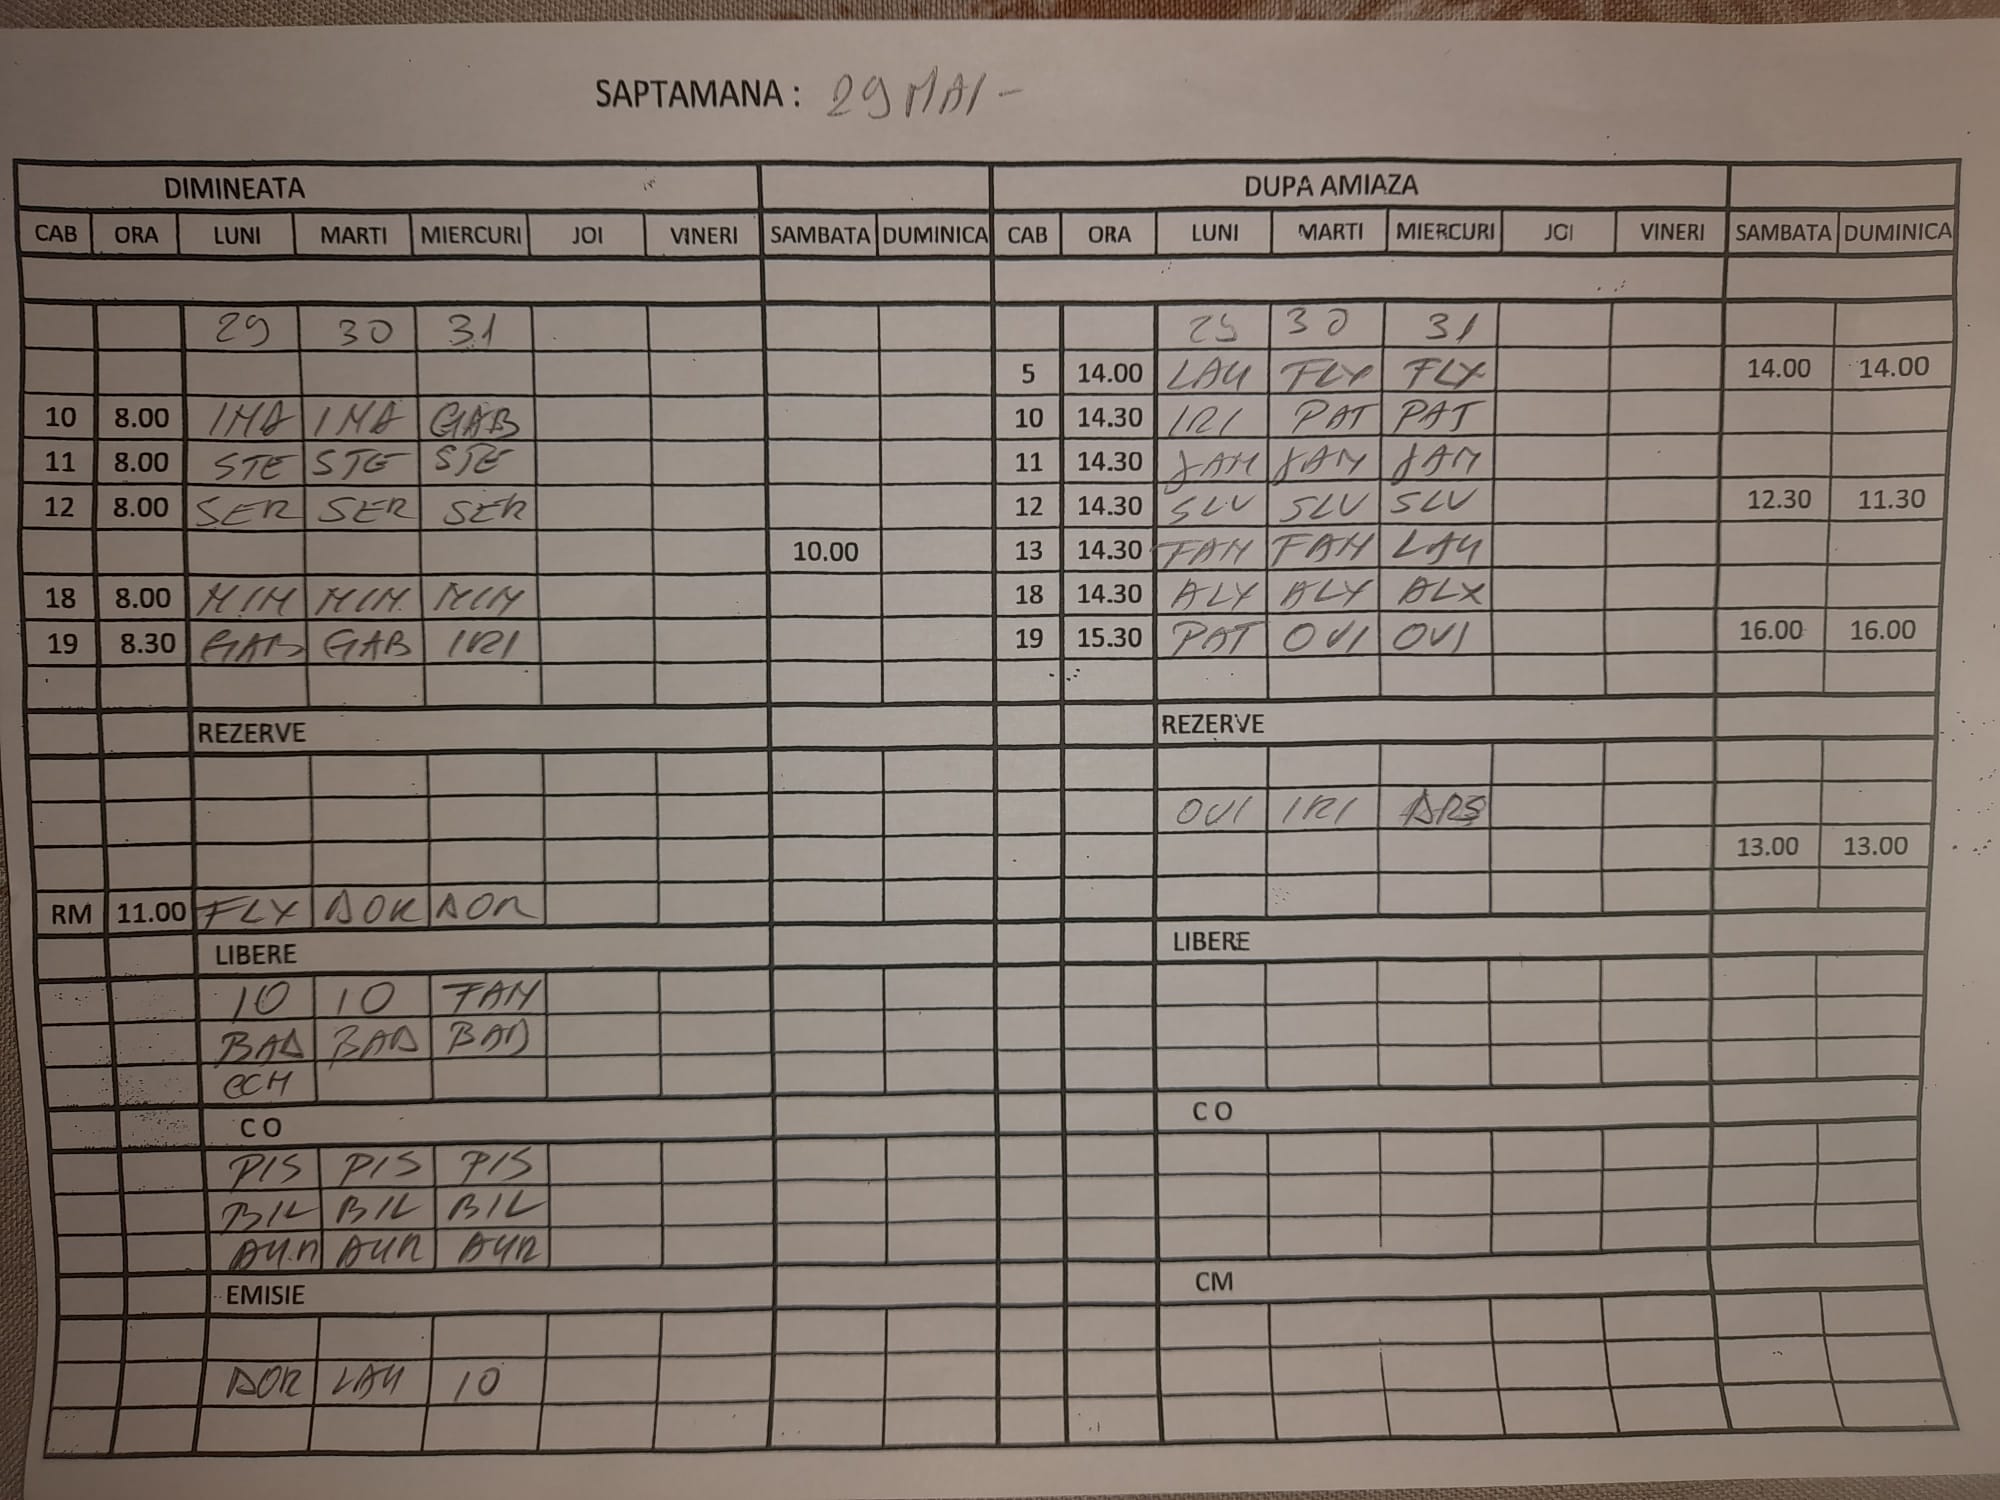 SAPTAMANA : 29 MAI -
DIMINEATA DUPA AMIAZA
CAB ORA LUNI MARTI MIERCURI JOI VINERI SAMBATA DUMINICA CAB ORA LUNI MARTI MIERCURI JOI VINERI SAMBATA DUMINICA
29 30 31 29 30 31
5 14.00 LAU FLX FLX 14.00 14.00
10 8.00 IMA IMA GAB 10 14.30 IRI PAT PAT
11 8.00 STE STE STE 11 14.30 JAM JAM JAM
12 8.00 SER SER SER 12 14.30 SLV SLV SLV 12.30 11.30
10.00 13 14.30 FAM FAM LAU
18 8.00 MIM MIM MIM 18 14.30 ALX ALX ALX
19 8.30 GAB GAB IRI 19 15.30 PAT OVI OVI 16.00 16.00
REZERVE REZERVE
OVI IRI
13.00 13.00
RM 11.00 FLX DOR DOR
LIBERE LIBERE
IO IO FAM
BAD BAD BAD
CCM
C O C O
PIS PIS PIS
BIL BIL BIL
AUR AUR AUR
EMISIE CM
DOR LAU IO